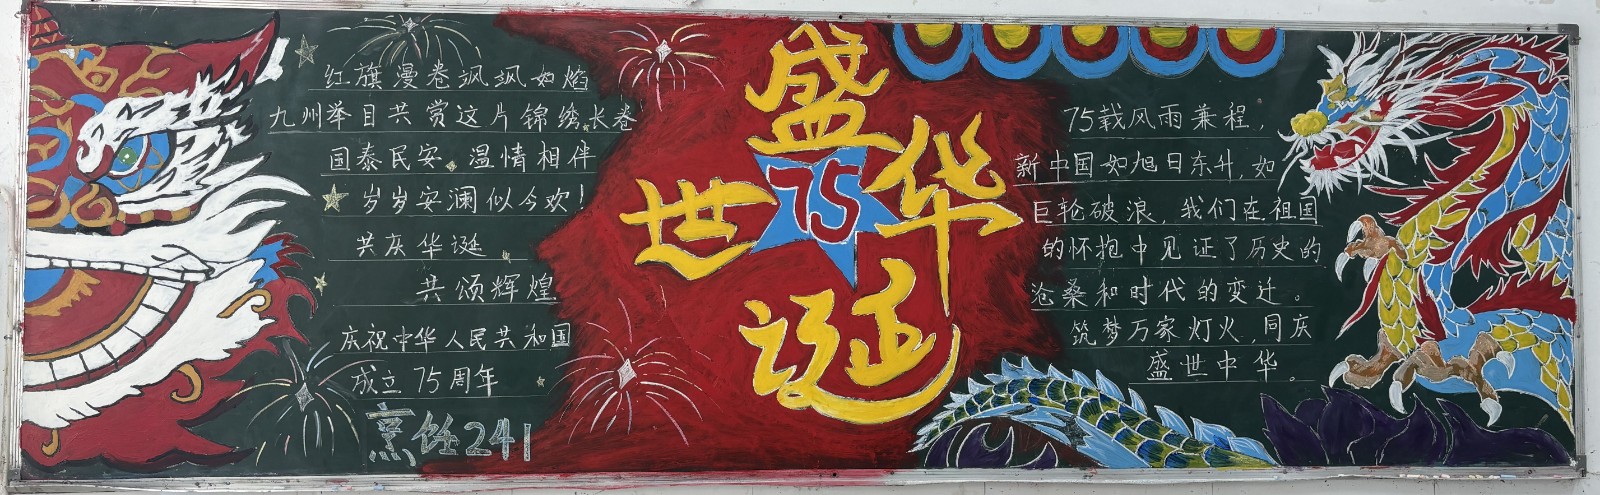 红旗漫卷飒飒如焰
九州举目共赏这片锦绣长卷
国泰民安。温情相伴
岁岁安澜似今欢！
共庆华诞
共颂辉煌
庆祝中华人民共和国
成立75周年
烹饪241
盛
世
75
华
诞
75载风雨兼程，
新中国如旭日东升，如
巨轮破浪，我们在祖国
的怀抱中见证了历史的
沧桑和时代的变迁。
筑梦万家灯火，同庆
盛世中华。